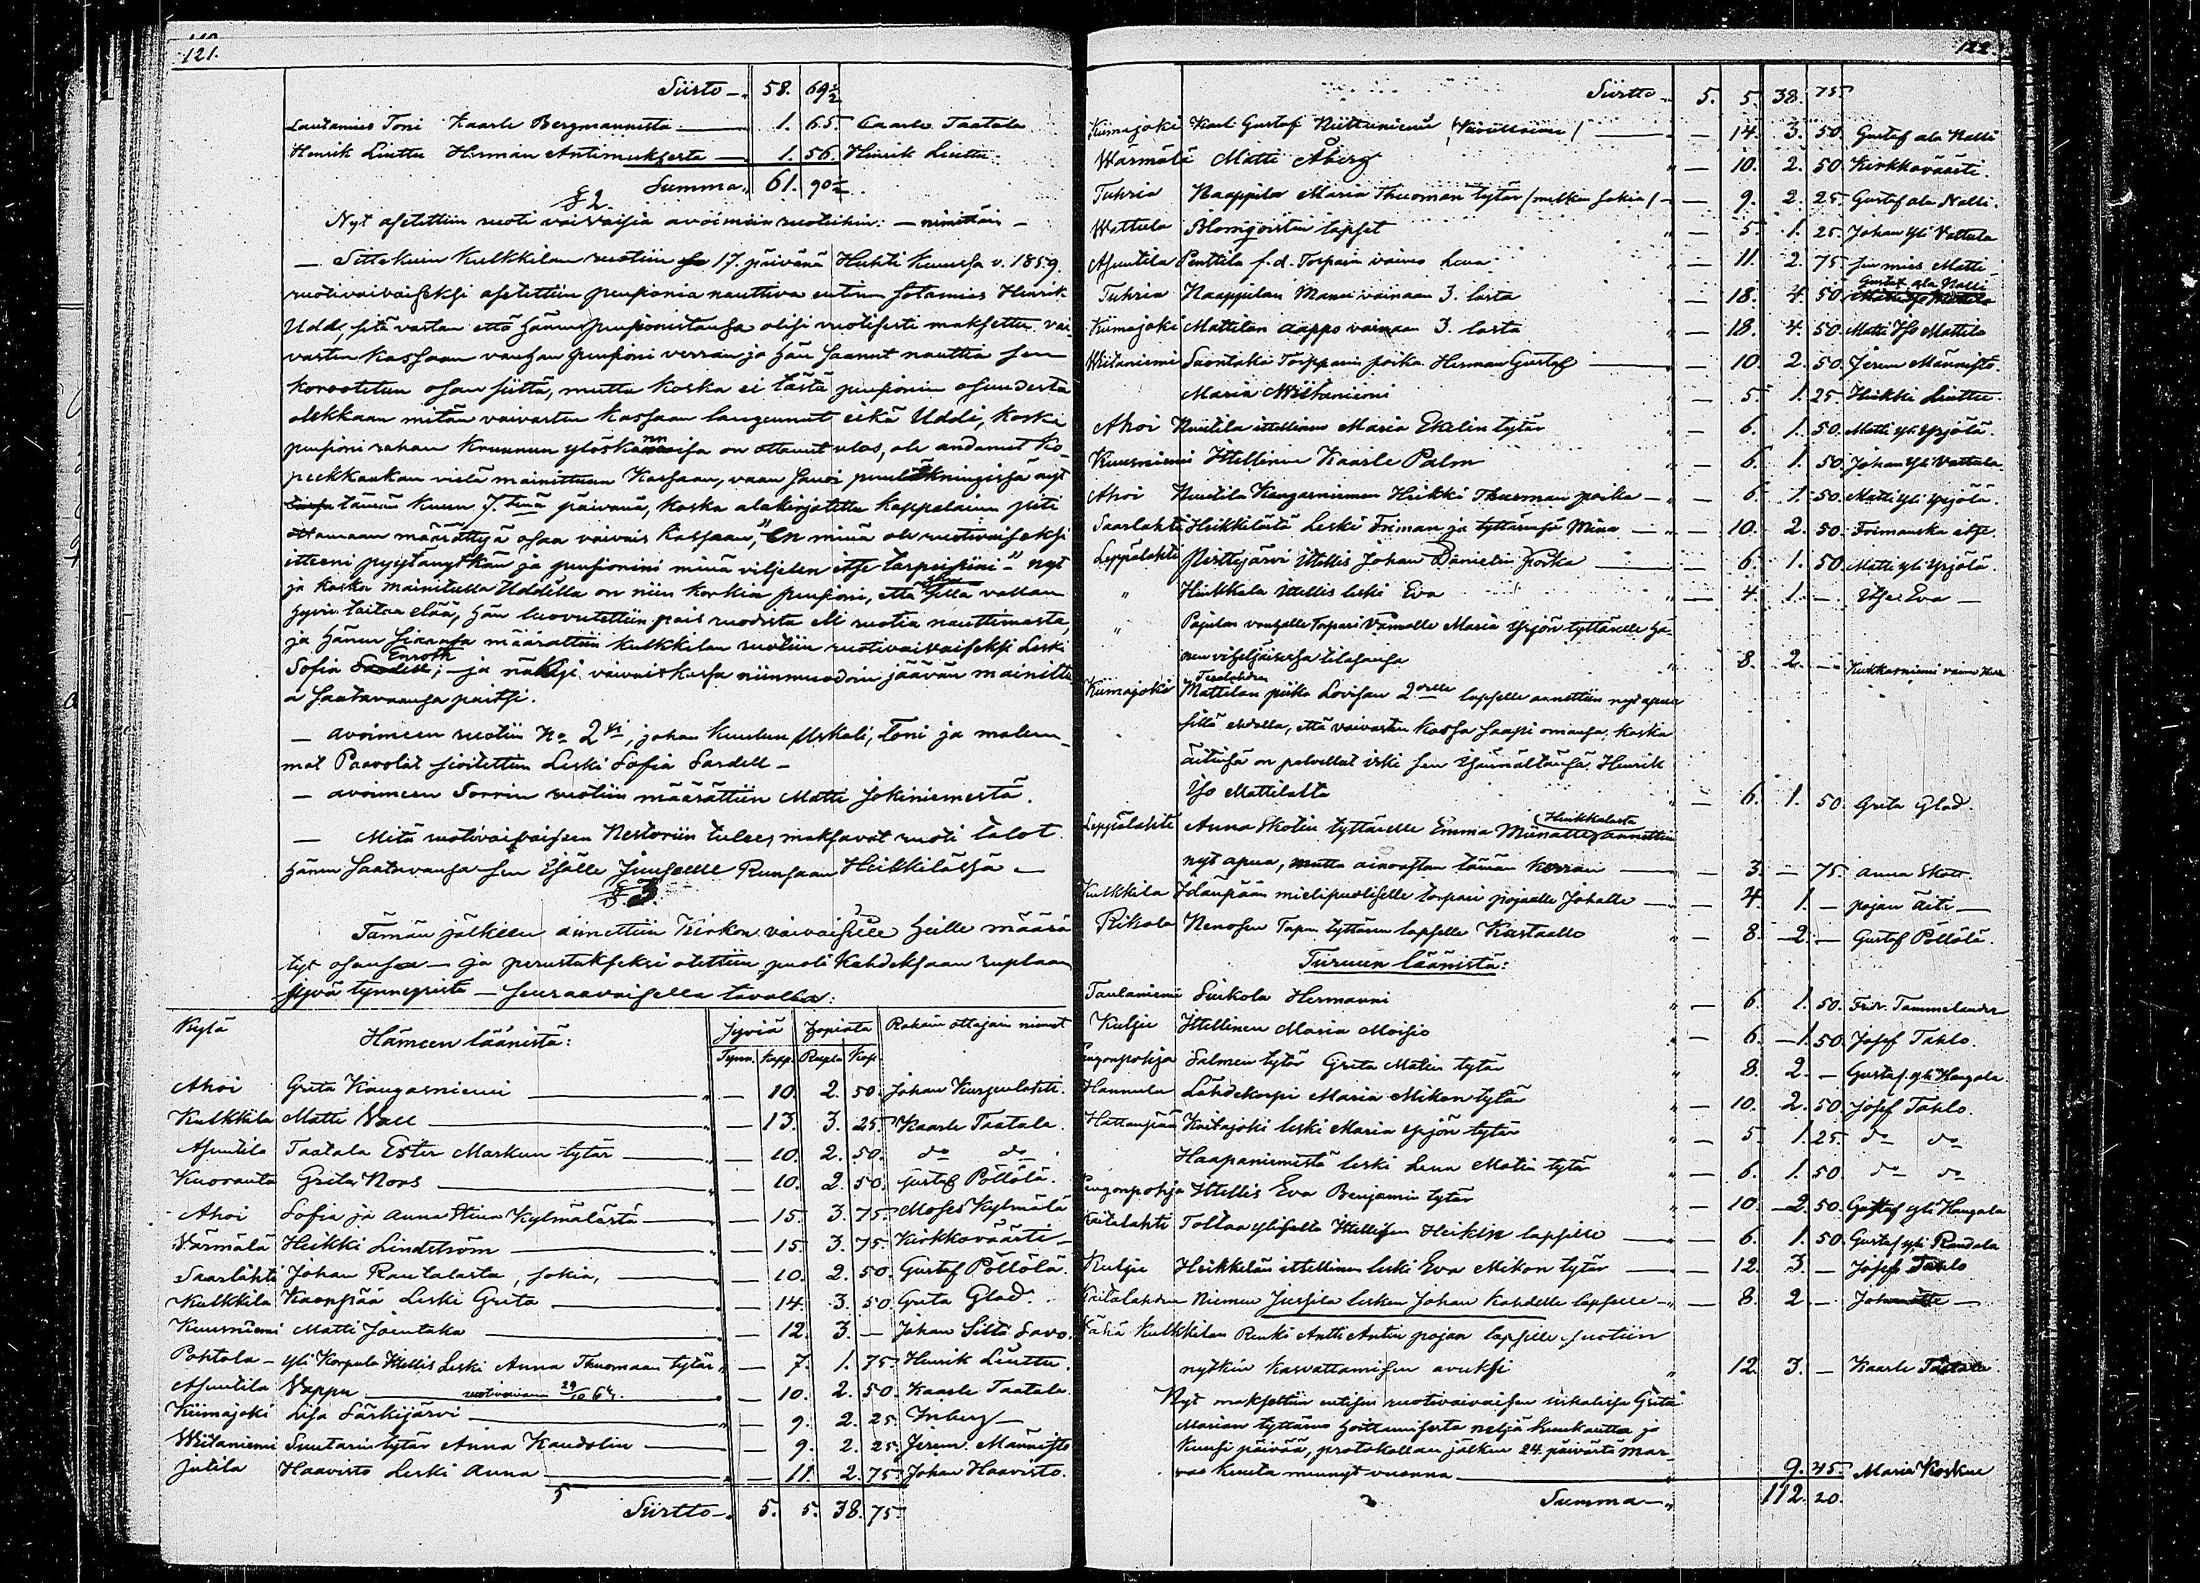 121.
Siirto — 58. 69½
Lautamies Toni Kaarle Bergmannista — 1. 65. Caarle Taatala
Henrik Liuttu Herman Antinmuksesta — 1. 56. Hinrik Liuttu.
Summa 61. 90½
§ 2.
Nyt asetettiin ruoti vaivaisia avoimiin ruoteihin: — nimittäin —
— Sittekuin Kulkkilan ruotiin 17. päivänä Huhti Kuussa v. 1859.
ruotivaivaiseksi asetettiin pensionia nauttiva entinen sotamies Henrik
Udd, sitä vastan että hänen pensionistansa olisi vuotisesti maksettu vai-
vasten kassaan vanhan pensioni verran ja hän saanut nauttia sen
korootetun osan siittä, mutta koska ei tästä pensionin osuudesta
olekkaan mitän vaivasten kassaan langennut eikä Uddi, koska
pensioni rahan Kruunun ylöskannoisa on ottanut ulos, ole andanut ko-
peekkaukan vielä mainittuun Kassaan, vaan sanoi nyt
tämän kuun 7. tenä päivänä, koska alakirjotettu kappalainen piti
ottamaan määrättyä osaa vaivais kassaan, "En minä ole ruotivaiseksi
itteeni pyytänytkän ja pensionini minä viljelen itse tarpeisiini" — nyt
ja koska mainitulla Uddilla on niin korkia pensioni, että sillä vallan
hyvin taitaa elää, hän luovutettiin pois ruodista eli ruotia nauttimasta,
ja hänen siaansa määrättiin kulkkilan ruotiin ruotivaivaiseksi Leski
Sofia Enroth; — ja näkyi vaivaiskassa niinmuodoin jäävän mainittu-
a saatavaansa paitsi.
— avoimeen ruotiin No 2 ksi, johon kuuluu Uskali, Toni ja molem-
mat Paavolat sioitettiin Leski Sofia Sardell —
— avoimeen Sorrin ruotiin määrättiin Matti Jokiniemestä.
— Mitä ruotivaivaiseen Nestoriin tulee, maksavat ruoti talot
hänen saatavansa sen Isälle Juuselle Runsaan Heikkilässä —
§ 3.
Tämän jälkeen annettiin Kirkon vaivaisille heille määrä-
tyt osansa — ja perustukseksi otettiin puoli kahdeksaan ruplaan
jyvä tynnyristä — seuraavaisella tavalla:
Kylä Hämeen läänistä: Jyviä Hopiata Rahain ottajain nimet
Tynn. Kapp. Rupla Kop.
Ahoi Greta Kangasniemi — 10. 2. 50. Johan Kurjenlahti.
Kulkkila Matti Wall — 13. 3. 25. Kaarle Taatala.
Asuntila Taatala Ester Markun tytär — 10. 2. 50. do do
Kuoranta Greta Roos — 10. 2. 50. Gustaf Pöllölä.
Ahoi Sofia ja Anna Stina Kylmälästä — 15. 3. 75. Moses Kylmälä
Värmälä Heikki Lindström — 15. 3. 75. Kirkkoväärti —
Saarlahti Johan Rautalasta, sokia, — 10. 2. 50. Gustaf Pöllölä.
Kulkkila Kaonpää Leski Greta — 14. 3. 50. Greta Glad.
Kuusniemi Matti Joentaka — 12. 3. — Johan Silta Savo.
Pohtola — Yli Korpula Ittellis Leski Anna Thuomaan tytär — 7. 1. 75. Henrik Liuttu.
Asuntila Vappu — ruotivaivaan 29/10 64. — 10. 2. 50. Kaarle Taatala
Kiimajoki Lisa Särkijärvi — 9. 2. 25. Inberg —
Wiitaniemi Suutarin tytär Anna Kandolin — 9. 2. 25. Jerem. Männistö
Jutila Haavisto Leski Anna — 11. 2. 75. Johan Haavisto.
Siirtto — 5. 5. 38. 75.
122
Siirtto 5. 5. 38. 75.
Kiimajoki Karl Gustaf Niittuniemi — 14. 3. 50. Gustaf ala Nalli
Wärmälä Matti Åberg — 10. 2. 50. Kirkkoväärti.
Tuhria Haappila Maria Thuoman tytär /melken sokia/ — 9. 2. 25. Gustaf ala Nalli.
Wattula Blomqvistin lapset — 5. 1. 25. Johan Yli Vattula
Asuntila Penttilä f.d. Torparin vaimo Lena — 11. 2. 75. sen mies Matti
Tuhria Haappilan Manu vainaan 3. lasta — 18. 4. 50. Gustaf ala Nalli
Kiimajoki Mattilan Aappo vainaan 3. lasta — 18. 4. 50. Matti Iso Mattila
Wiitaniemi Saontaka Torpparin poika Herman Gustaf — 10. 2. 50. Jerem Männistö.
Maria Wiitaniemi — 5. 1. 25. Heikki Liuttu.
Ahoi Huitila ittellinen Maria Ekelin tytär — 6. 1. 50. Matti yli Yrjölä.
Kuusniemi Ittellinen Kaarle Palm — 6. 1. 50. Johan Yli Vattula.
Ahoi Huitila Kangasniemen Heikki Thuoman poika — 6. 1. 50. Matti yli Yrjölä.
Saarlahti Heikkilästä Leski Friman ja tyttärensä Mina — 10. 2. 50. Frimanska itse.
Leppälahti Ittellis Johan Danielin Poika — 6. 1. 50. Matti yli Yrjölä.
" Heikkala Ittellis leski Eva — 4. 1. — Itse Eva —
" Pajulan vanhalle Torpari Vaimolle Maria Yrjön tyttärelle hä-
nen viheljäisessa tilasansa 8. 2. —
Kiimajoki Mattilan piika Lovisan 2 delle lapselle annettiin nyt apua
sillä ehdolla, että vaivasten kassa saapi omansa, koska
äitinsä on palvellut Isännältänsä, Henrik
Iso Mattilalta — 6. 1. 50. Greta Glad.
Leppälahti Anna Skotin tyttärelle Emma Minalle (Heikkalasta) annettiin
nyt apua, mutta ainoastan tämän kerran — 3. — 75. Anna Skott.
Kulkkila Idänpään mielipuoliselle torpari pojalle Johalle — 4. 1. — pojan äiti —
Rikala Nenosen Tapun tyttären lapselle Kustaallo — 8. 2. — Gustaf Pöllölä.
Turuun läänistä:
Taulaniemi Suikola Hermanni — 6. 1. 50. Fredr. Tammelander
Kulju Ittellinen Maria Moisio — 6. 1. 50. Josef Tahlo.
Salmen tytär Greta Matin tytär 8. 2. — Gustaf yli Hangala.
Hannula Lähdekorpi Maria Mikon tytär — 10. 2. 50. Josef Tahlo.
Hattanpää Kaitajoki leski Maria Yrjön tytär — 5. 1. 25. do do
Haapaniemistä leski Lena Matin tytär — 6. 1. 50. do do
Ittellis Eva Benjamin tytär — 10. 2. 50. Gustaf yli Hangala
Kaitalahti Tottaa ylisella Ittellisen Heikin lapselle — 6. 1. 50. Gustaf yli Randala
Kulju Heikkilän ittellinen leski Eva Mikon tytär — 12. 3. — Josef Tahlo
Kaitalahden Niemen Jussila lesken Johan Kahdelle lapselle — 8. 2. —
Kulkkilan Renki Antti Antin pojan lapselle ruotiin
nytkin kasvattamisen avuksi 12. 3. — Kaarle Taatala.
Nyt maksettiin entisen ruotivaivaisen Greta
Marian tyttären hoittamisesta neljä kuukautta ja
kuusi päivää, protokollan jälkeen 24. päivästä mar-
ras kuuta mennyt vuonna — 9. 45. Maria Koskue
Summa — 112. 20.